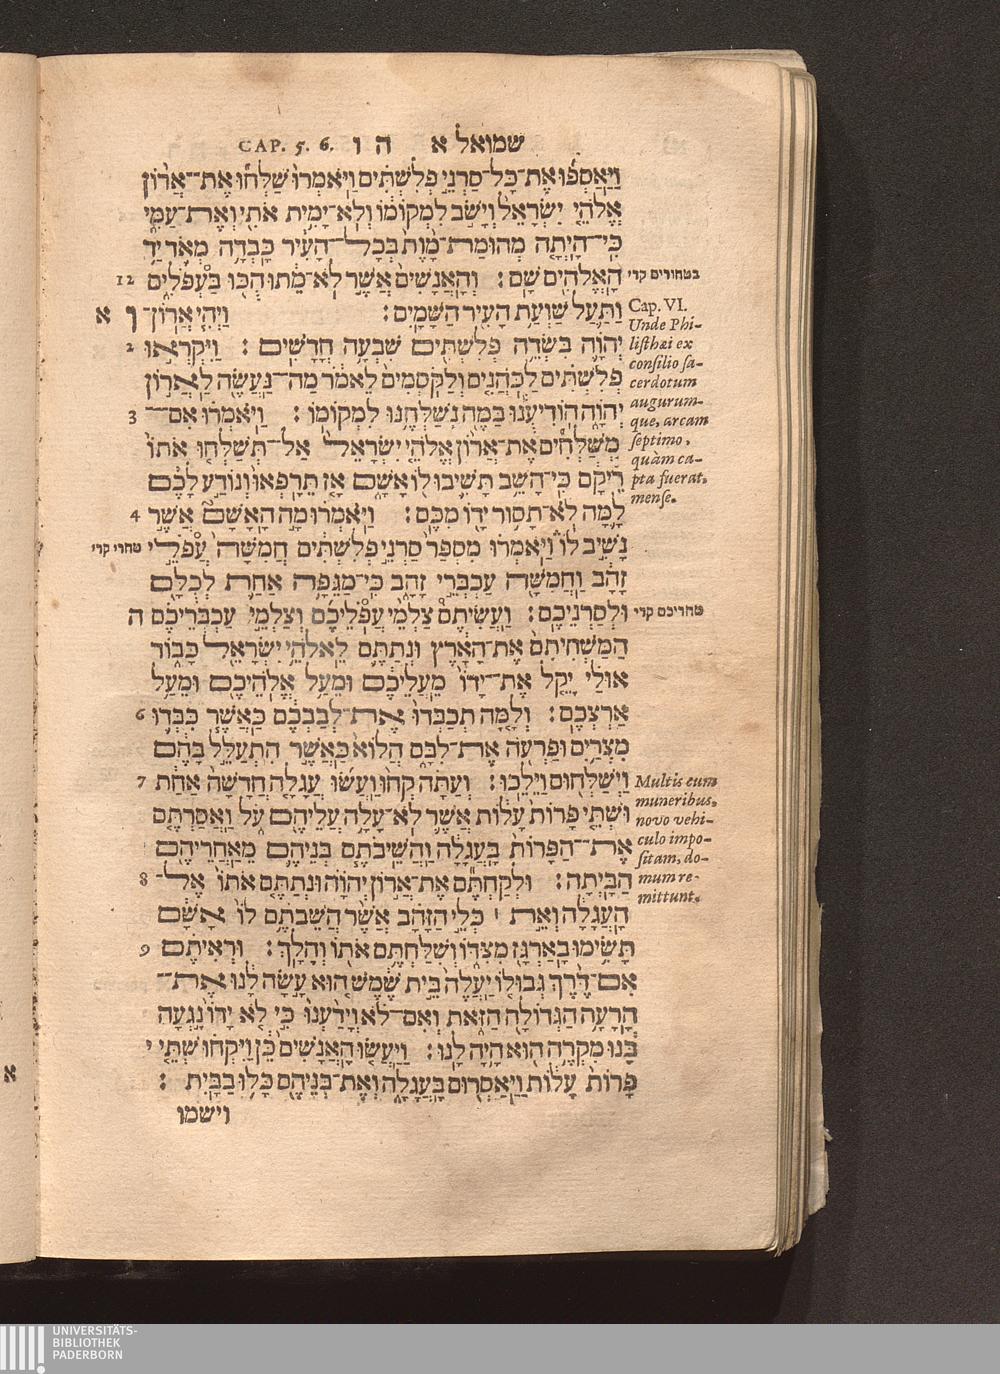 שמואל א ה ו CAP. 5. 6.
וַיַּאַסְפוּ אֶת־כָּל־סַרְנֵי פְלִשְׁתִּים וַיֹּאמְרוּ שַׁלְּחוּ אֶת־אֲרוֹן
אֱלֹהֵי יִשְׂרָאֵל וְיָשֹׁב לִמְקוֹמוֹ וְלֹא־יָמִית אֹתִי וְאֶת־עַמִּי
כִּי־הָיְתָה מְהוּמַת־מָוֶת בְּכָל־הָעִיר כָּבְדָה מְאֹד יַד
הָאֱלֹהִים שָׁם : וְהָאֲנָשִׁים אֲשֶׁר לֹא־מֵתוּ הֻכּוּ בַּעְפֹלִים 12
בטחורים קרי
וַתַּעַל שַׁוְעַת הָעִיר הַשָּׁמָיִם : וַיְהִי אֲרוֹן־ ו א
יְהוָה בִּשְׂדֵה פְלִשְׁתִּים שִׁבְעָה חֳדָשִׁים : וַיִּקְרְאוּ 2
פְלִשְׁתִּים לַכֹּהֲנִים וְלַקֹּסְמִים לֵאמֹר מַה־נַּעֲשֶׂה לַאֲרוֹן
יְהוָה הוֹדִיעֻנוּ בַּמֶּה נְשַׁלְּחֶנּוּ לִמְקוֹמוֹ : וַיֹּאמְרוּ אִם־ 3
מְשַׁלְּחִים אֶת־אֲרוֹן אֱלֹהֵי יִשְׂרָאֵל אַל־תְּשַׁלְּחוּ אֹתוֹ
רֵיקָם כִּי־הָשֵׁב תָּשִׁיבוּ לוֹ אָשָׁם אָז תֵּרָפְאוּ וְנוֹדַע לָכֶם
לָמָּה לֹא־תָסוּר יָדוֹ מִכֶּם : וַיֹּאמְרוּ מָה הָאָשָׁם אֲשֶׁר 4
Cap. VI.
Unde Phi-
listhæi ex
consilio sa-
cerdotum
augurum-
que, arcam
septimo,
quàm ca-
pta fuerat,
mense.
נָשִׁיב לוֹ וַיֹּאמְרוּ מִסְפַּר סַרְנֵי פְלִשְׁתִּים חֲמִשָּׁה עָפְלֵי
טחרי קרי
זָהָב וַחֲמִשָּׁה עַכְבְּרֵי זָהָב כִּי־מַגֵּפָה אַחַת לְכֻלָּם
וּלְסַרְנֵיכֶם : וַעֲשִׂיתֶם צַלְמֵי עָפְלֵיכֶם וְצַלְמֵי עַכְבְּרֵיכֶם ה
טחריכם קרי
הַמַּשְׁחִיתִם אֶת־הָאָרֶץ וּנְתַתֶּם לֵאלֹהֵי יִשְׂרָאֵל כָּבוֹד
אוּלַי יָקֵל אֶת־יָדוֹ מֵעֲלֵיכֶם וּמֵעַל אֱלֹהֵיכֶם וּמֵעַל
אַרְצְכֶם : וְלָמָּה תְכַבְּדוּ אֶת־לְבַבְכֶם כַּאֲשֶׁר כִּבְּדוּ 6
מִצְרַיִם וּפַרְעֹה אֶת־לִבָּם הֲלוֹא כַּאֲשֶׁר הִתְעַלֵּל בָּהֶם
וַיְשַׁלְּחוּם וַיֵּלֵכוּ : וְעַתָּה קְחוּ וַעֲשׂוּ עֲגָלָה חֲדָשָׁה אֶחָת 7
וּשְׁתֵּי פָרוֹת עָלוֹת אֲשֶׁר לֹא־עָלָה עֲלֵיהֶם עֹל וַאֲסַרְתֶּם
אֶת־הַפָּרוֹת בָּעֲגָלָה וַהֲשֵׁיבֹתֶם בְּנֵיהֶם מֵאַחֲרֵיהֶם
הַבָּיְתָה : וּלְקַחְתֶּם אֶת־אֲרוֹן יְהוָה וּנְתַתֶּם אֹתוֹ אֶל־ 8
Multis cum
muneribus,
novo vehi-
culo impo-
sitam, do-
mum re-
mittunt.
הָעֲגָלָה וְאֵת ׀ כְּלֵי הַזָּהָב אֲשֶׁר הֲשֵׁבֹתֶם לוֹ אָשָׁם
תָּשִׂימוּ בָאַרְגַּז מִצִּדּוֹ וְשִׁלַּחְתֶּם אֹתוֹ וְהָלָךְ : וּרְאִיתֶם 9
אִם־דֶּרֶךְ גְּבוּלוֹ יַעֲלֶה בֵּית שֶׁמֶשׁ הוּא עָשָׂה לָנוּ אֶת־
הָרָעָה הַגְּדוֹלָה הַזֹּאת וְאִם־לֹא וְיָדַעְנוּ כִּי לֹא יָדוֹ נָגְעָה
בָּנוּ מִקְרֶה הוּא הָיָה לָנוּ : וַיַּעֲשׂוּ הָאֲנָשִׁים כֵּן וַיִּקְחוּ שְׁתֵּי י
פָרוֹת עָלוֹת וַיַּאַסְרוּם בָּעֲגָלָה וְאֶת־בְּנֵיהֶם כָּלוּ בַבָּיִת :
וישמו
א
UNIVERSITÄTS-
BIBLIOTHEK
PADERBORN